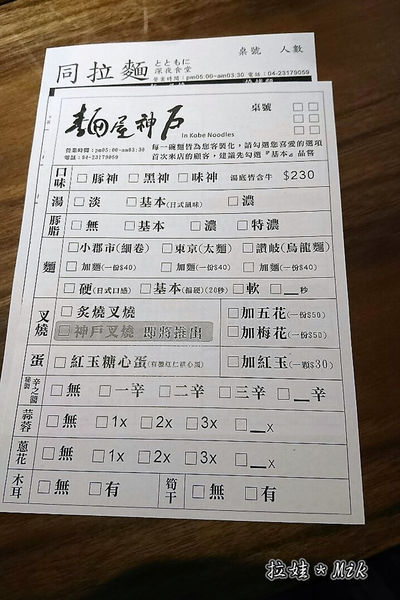 桌號 人數
同拉麵 とともに
深夜食堂
營業時間：pm05:00-am03:30 電話：04-23179059
麵屋神戶
In Kobe Noodles
桌號
營業時間：pm05:00-am03:30
電話：04-23179059
每一碗麵皆為您客製化，請勾選您喜愛的選項
首次來店的顧客，建議先勾選『基本』品嘗
口味 □豚神 □黑神 □味神 湯底皆含牛 $230
湯 □淡 □基本(日式鹹味) □濃
豚脂 □無 □基本 □濃 □特濃
麵 □小郡市(細卷) □東京(太麵) □讚岐(烏龍麵)
□加麵(一份$40) □加麵(一份$40) □加麵(一份$40)
□硬(日式口感) □基本(偏硬)(20秒) □軟 □__秒
叉燒 □炙燒叉燒 □加五花(一份$50)
□神戶叉燒 即將推出 □加梅花(一份$50)
蛋 □紅玉糖心蛋(有機紅仁糖心蛋) □加紅玉(一顆$30)
秘製辛之醬 □無 □一辛 □二辛 □三辛 □__辛
蒜蓉 □無 □1x □2x □3x □__x
蔥花 □無 □1x □2x □3x □__x
木耳 □無 □有 筍干 □無 □有
拉娃＊Mik